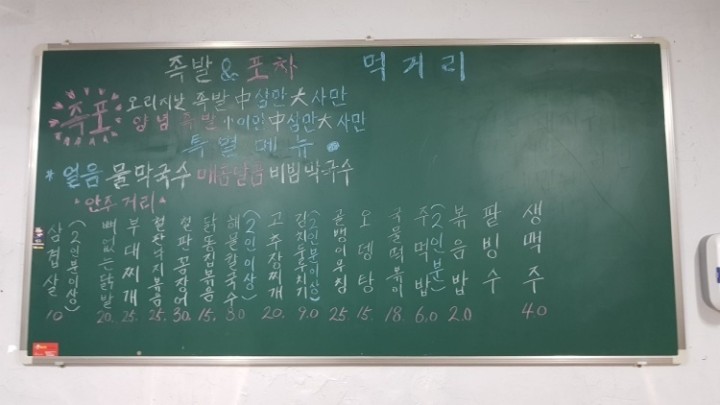 족발 & 포차 먹거리
족포
오리지날 족발 中삼만 大사만
양념 족발 小이만 中삼만 大사만
특별메뉴
* 얼음 물막국수 매콤달콤 비빔막국수
안주거리
삼겹살 (2인분이상) 10
뼈없는닭발 20.
부대찌개 25.
철판제육볶음 25.
철판꼼장어 30.
닭똥집볶음 15.
해물칼국수 (2인이상) 8.0
고추장찌개 20.
김치수제비 (2인분이상) 9.0
골뱅이무침 25
오뎅탕 15.
국물떡볶이 18.
주먹밥 (2인분) 6.0
볶음밥 2.0
팥빙수
생맥주 40